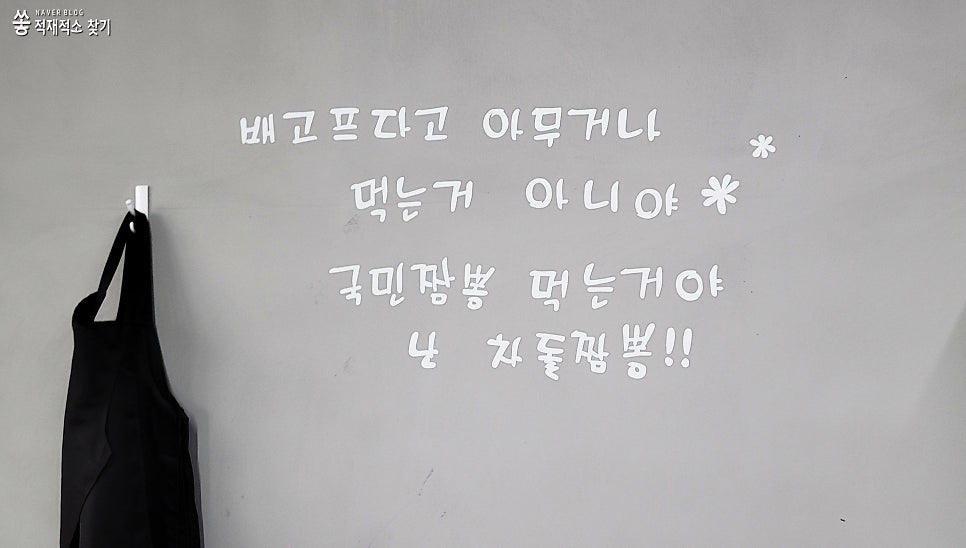 쏭 NAVER BLOG
적재적소 찾기
배고프다고 아무거나
먹는거 아니야
국민짬뽕 먹는거야
난 차돌짬뽕!!